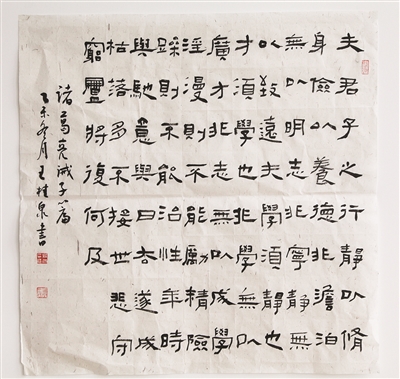 夫君子之行静以脩
身儉以養德非澹泊
無以明志非寧静無
以致遠夫學須静也
才須學也非學無以
廣才非志無以成學
淫漫則不能勵精險
躁則不能治性年時
與馳意與日去遂成
枯落多不接世悲守
窮廬將復何及
諸葛亮誡子篇
乙未冬月王桂泉書